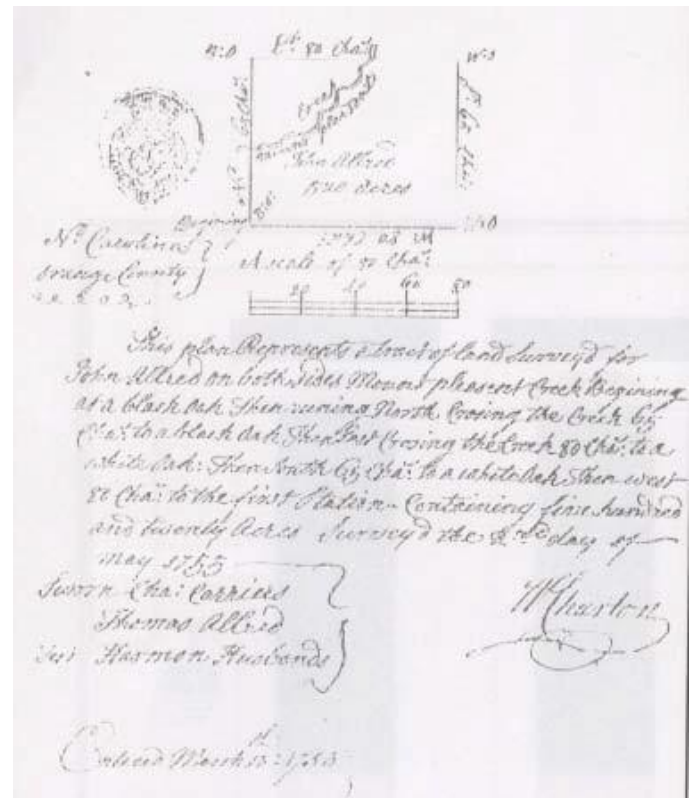 Et 80 Cha:
B:O
W:O
Creek
Mount pleasant
No 65 Cha:
So 65 Cha:
John Allred
520 acres
Begining B:O:
W:O
W 80 Cha:
No Carolina
orange County
A scale of 80 Cha:
20 40 60 80
This plan Represents a tract of land Survey'd for
John Allred on both sides Mount pleasent Creek Begining
at a black Oak Then runing North Crosing the Creek 65
Cha: to a black Oak Then East Crosing the Creek 80 Cha: to a
white Oak: Then South 65 Cha: to a white Oak Then west
80 Cha: to the first Station - Containing five hundred
and twenty Acres Survey'd the 2nd day of
may 1755
Sworn Cha: Carriers
Thomas Allred
Harmon Husbands
WChurton
Entred March 1753